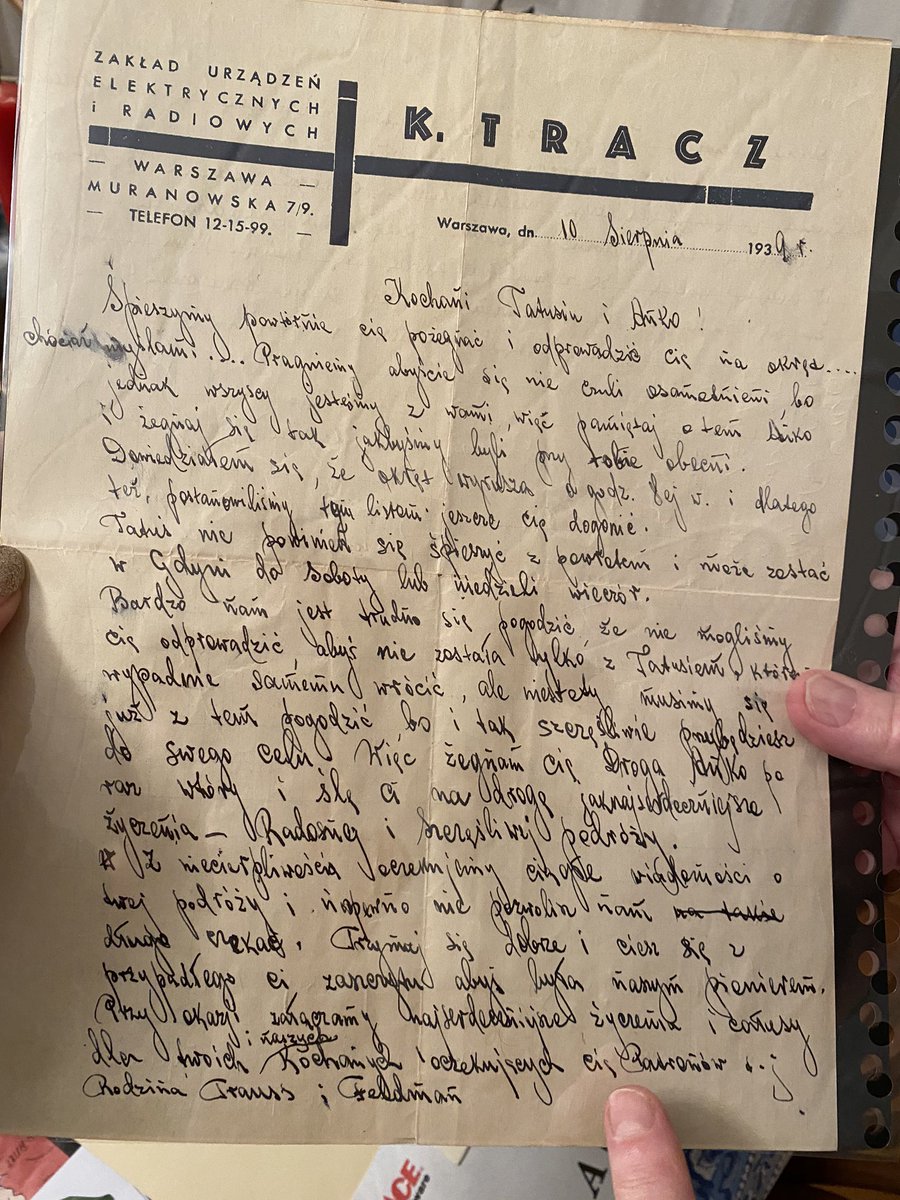 ZAKŁAD URZĄDZEŃ
ELEKTRYCZNYCH
i RADIOWYCH
K. TRACZ
— WARSZAWA —
MURANOWSKA 7/9.
— TELEFON 12-15-99. —
Warszawa, dn. 10 Sierpnia 1939 r.
Kochani Tatusiu i Anko!
Spieszymy powtórnie cię pożegnać i odprowadzić cię na okręt....
chociaż myślami.... Pragniemy abyście się nie czuli osamotnieni, bo
jednak wszyscy jesteśmy z wami, więc pamiętaj o tem Anko
i żegnaj się tak jakbyśmy byli przy tobie obecni.
Dowiedziałem się, że okręt wyrusza o godz. 8ej w. i dlatego
też, postanowiliśmy tym listem jeszcze cię dogonić.
Tatuś nie powinien się śpieszyć z powrotem i może zostać
w Gdyni do Soboty lub niedzieli wieczór.
Bardzo nam jest trudno się pogodzić, że nie mogliśmy
cię odprowadzić, abyś nie została tylko z Tatusiem,
wypadnie samemu wrócić, ale niestety musimy się
już z tem pogodzić, bo i tak szczęśliwie przybędziesz
do swego celu. Więc żegnam cię Droga Anko po
raz wtóry i ślę ci na drogę jaknajserdeczniejsze
życzenia — Radosnej i Szczęśliwej podróży.
Z niecierpliwością oczekujemy ciągle wiadomości o
twej podróży i napewno nie pozwolisz nam na takie
długo czekać. Trzymaj się dobrze i ciesz się z
przypadłego ci zaszczytu abyś była naszym pionierem.
Przy okazji załączamy najserdeczniejsze życzenia i całusy
dla twoich i naszych Kochanych oczekujących cię
Rodzina Trauss i Feldman